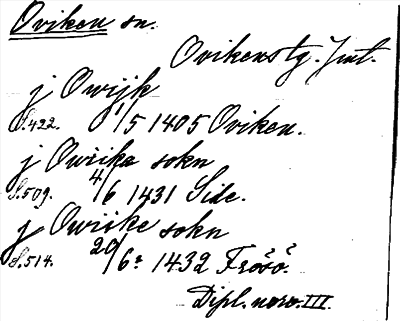 Oviken sn.
Ovikens tg. Jmt.
j Owijk
S.422. 1/5 1405 Oviken.
j Owiike sokn
S.509. 4/6 1431 Side.
j Owiike sokn
S.514. 20/6 1432 Frösö.
Dipl. norv. III.